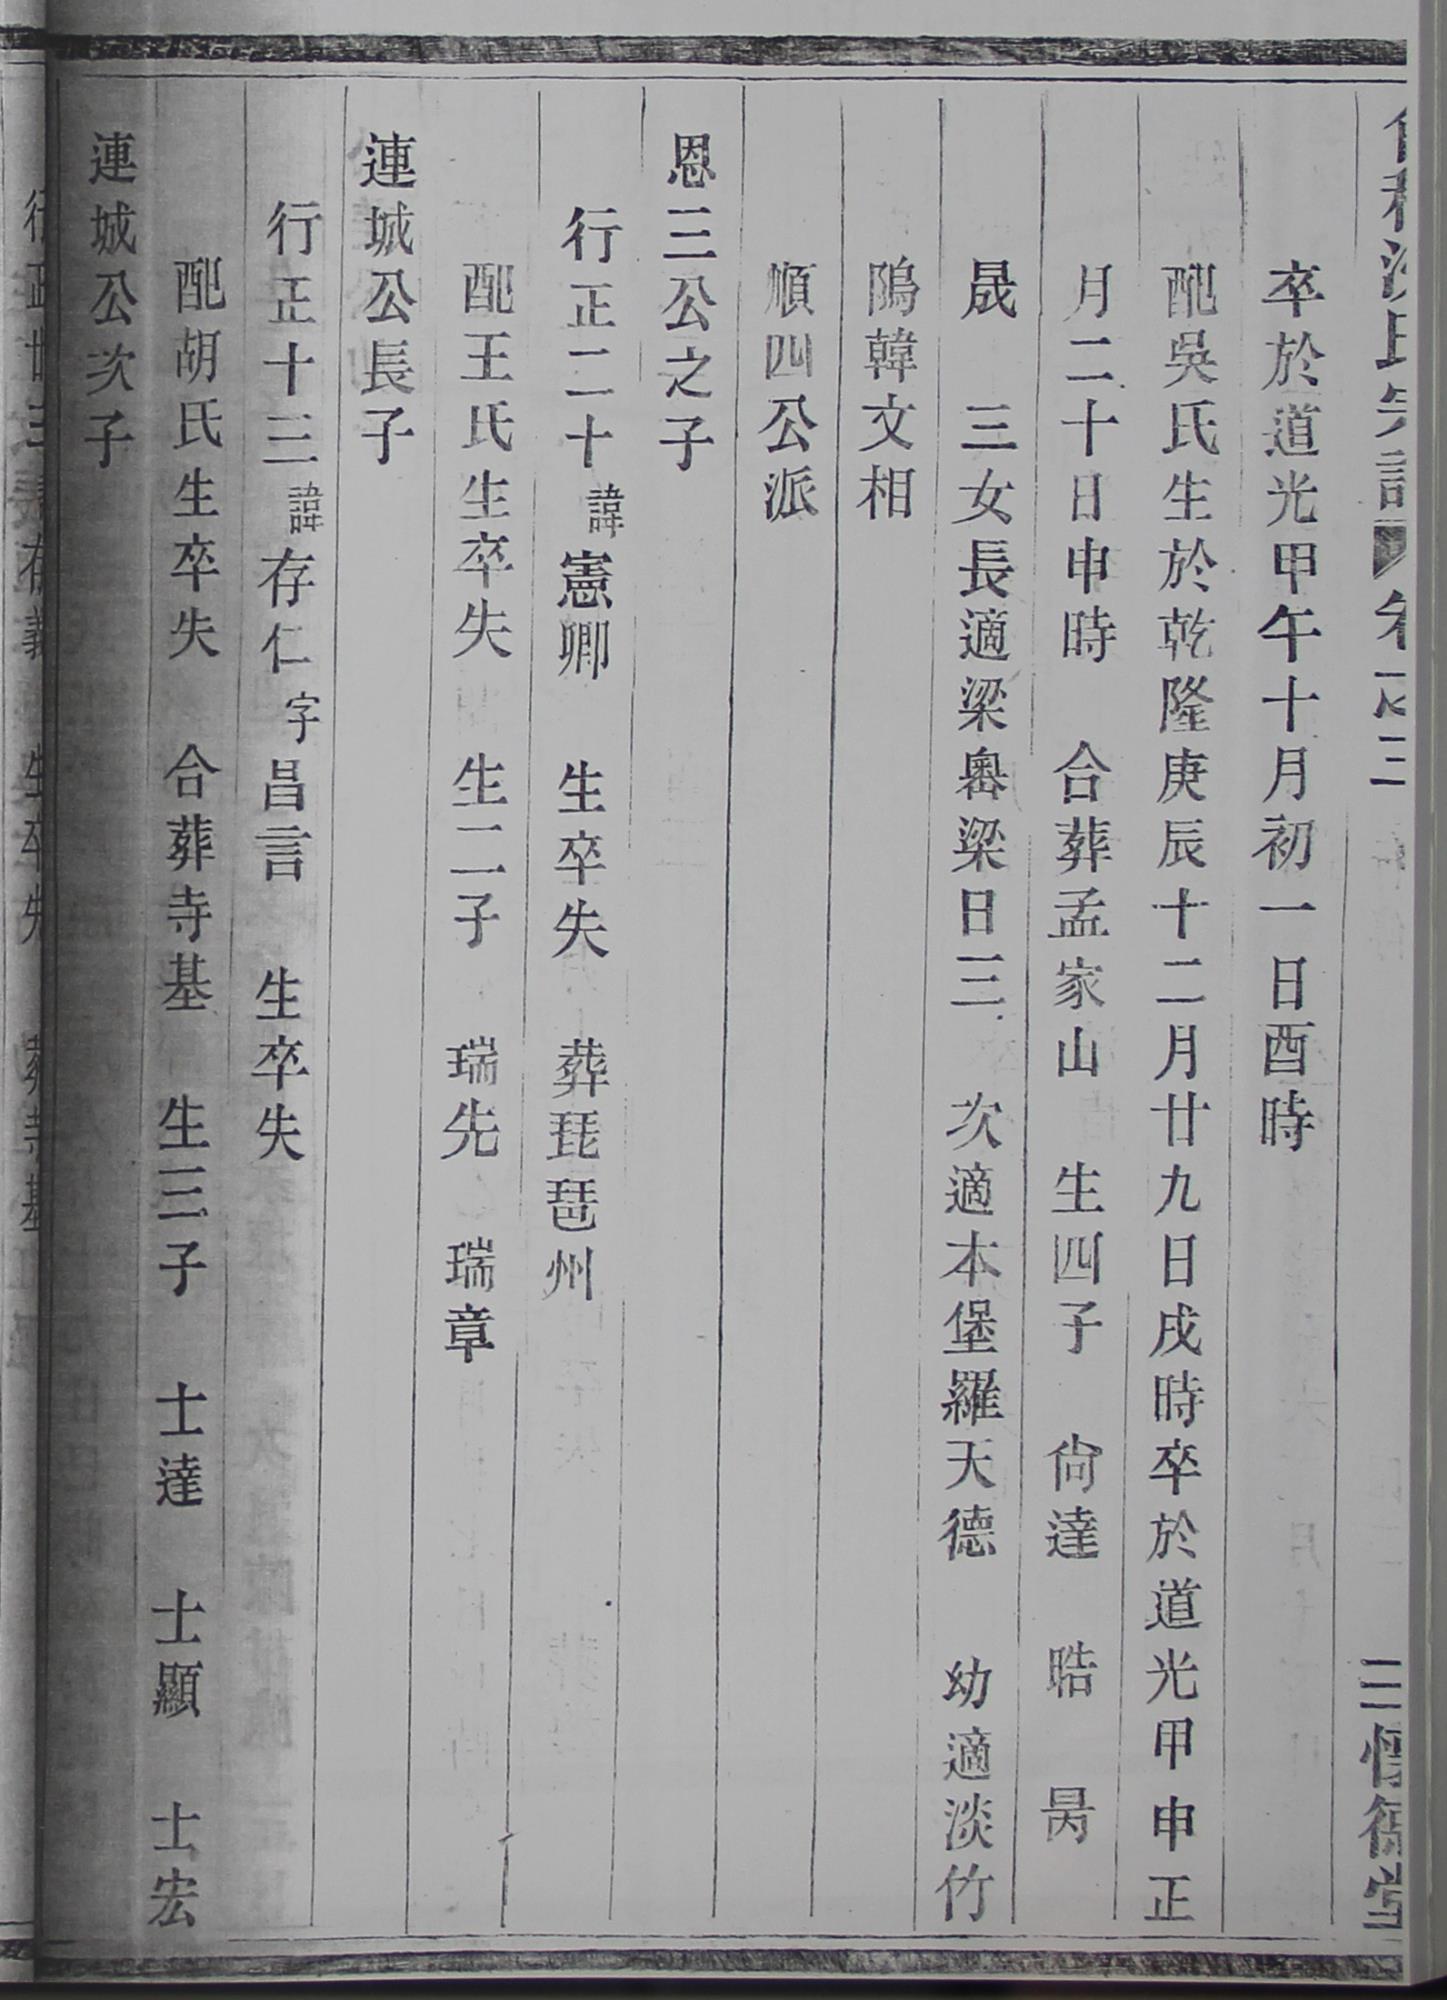 氏宗譜 卷之三 三 惇德堂
卒於道光甲午十月初一日酉時
配吳氏生於乾隆庚辰十二月廿九日戌時卒於道光甲申正
月二十日申時 合葬孟家山 生四子 尙達 晧 昺
晟 三女長適梁嶴梁日三 次適本堡羅天德 幼適淡竹
隖韓文相
順四公派
恩三公之子
行正二十諱憲卿 生卒失 葬琵琶州
配王氏生卒失 生二子 瑞先 瑞章
連城公長子
行正十三諱存仁字昌言 生卒失
配胡氏生卒失 合葬寺基 生三子 士達 士顯 士宏
連城公次子
行正廿三諱存義 生卒失 葬寺基